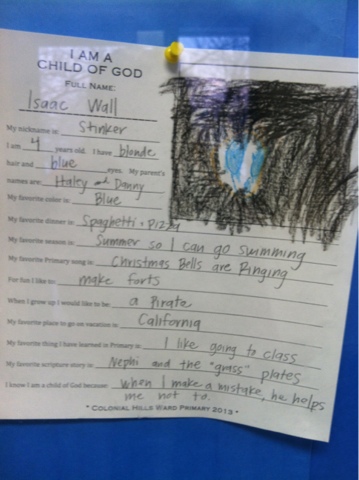 I AM A
CHILD OF GOD
FULL NAME:
Isaac Wall
My nickname is: Stinker
I am 4 years old. I have blonde
hair and blue eyes. My parent's
names are: Haley and Danny
My favorite color is: Blue
My favorite dinner is: Spaghetti + Pizza
My favorite season is: Summer so I can go swimming
My favorite Primary song is: Christmas Bells are Ringing
For fun I like to: make forts
When I grow up I would like to be: a Pirate
My favorite place to go on vacation is: California
My favorite thing I have learned in Primary is: I like going to class
My favorite scripture story is: Nephi and the "grass" plates
I know I am a child of God because: when I make a mistake, he helps
me not to.
* COLONIAL HILLS WARD PRIMARY 2013 *